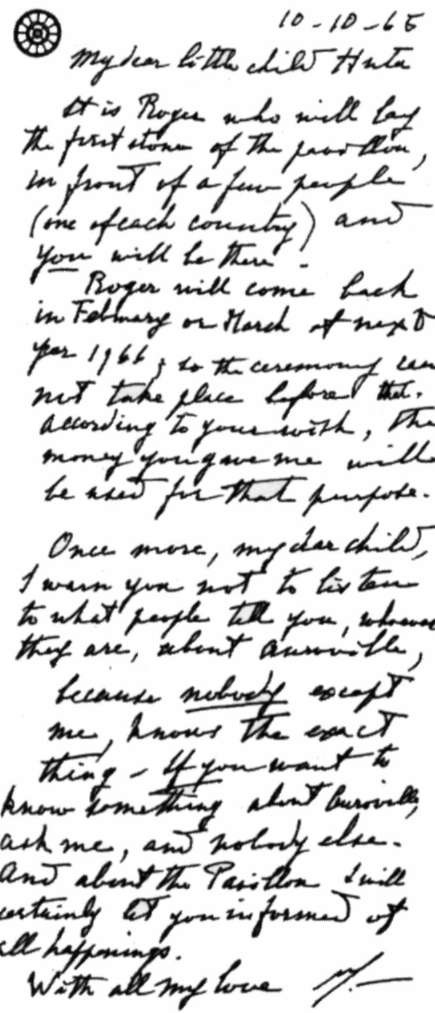 10-10-65
My dear little child Huta
It is Roger who will lay
the first stone of the pavillon,
in front of a few people
(one of each country) and
you will be there.
Roger will come back
in February or March of next
year 1966; so the ceremony can
not take place before that.
According to your wish, the
money you gave me will
be used for that purpose.
Once more, my dear child,
I warn you not to listen
to what people tell you, whoever
they are, about Auroville,
because nobody except
me, knows the exact
thing - If you want to
know something about Auroville,
ask me, and nobody else.
And about the Pavillon I will
certainly let you informed of
all happenings.
With all my love